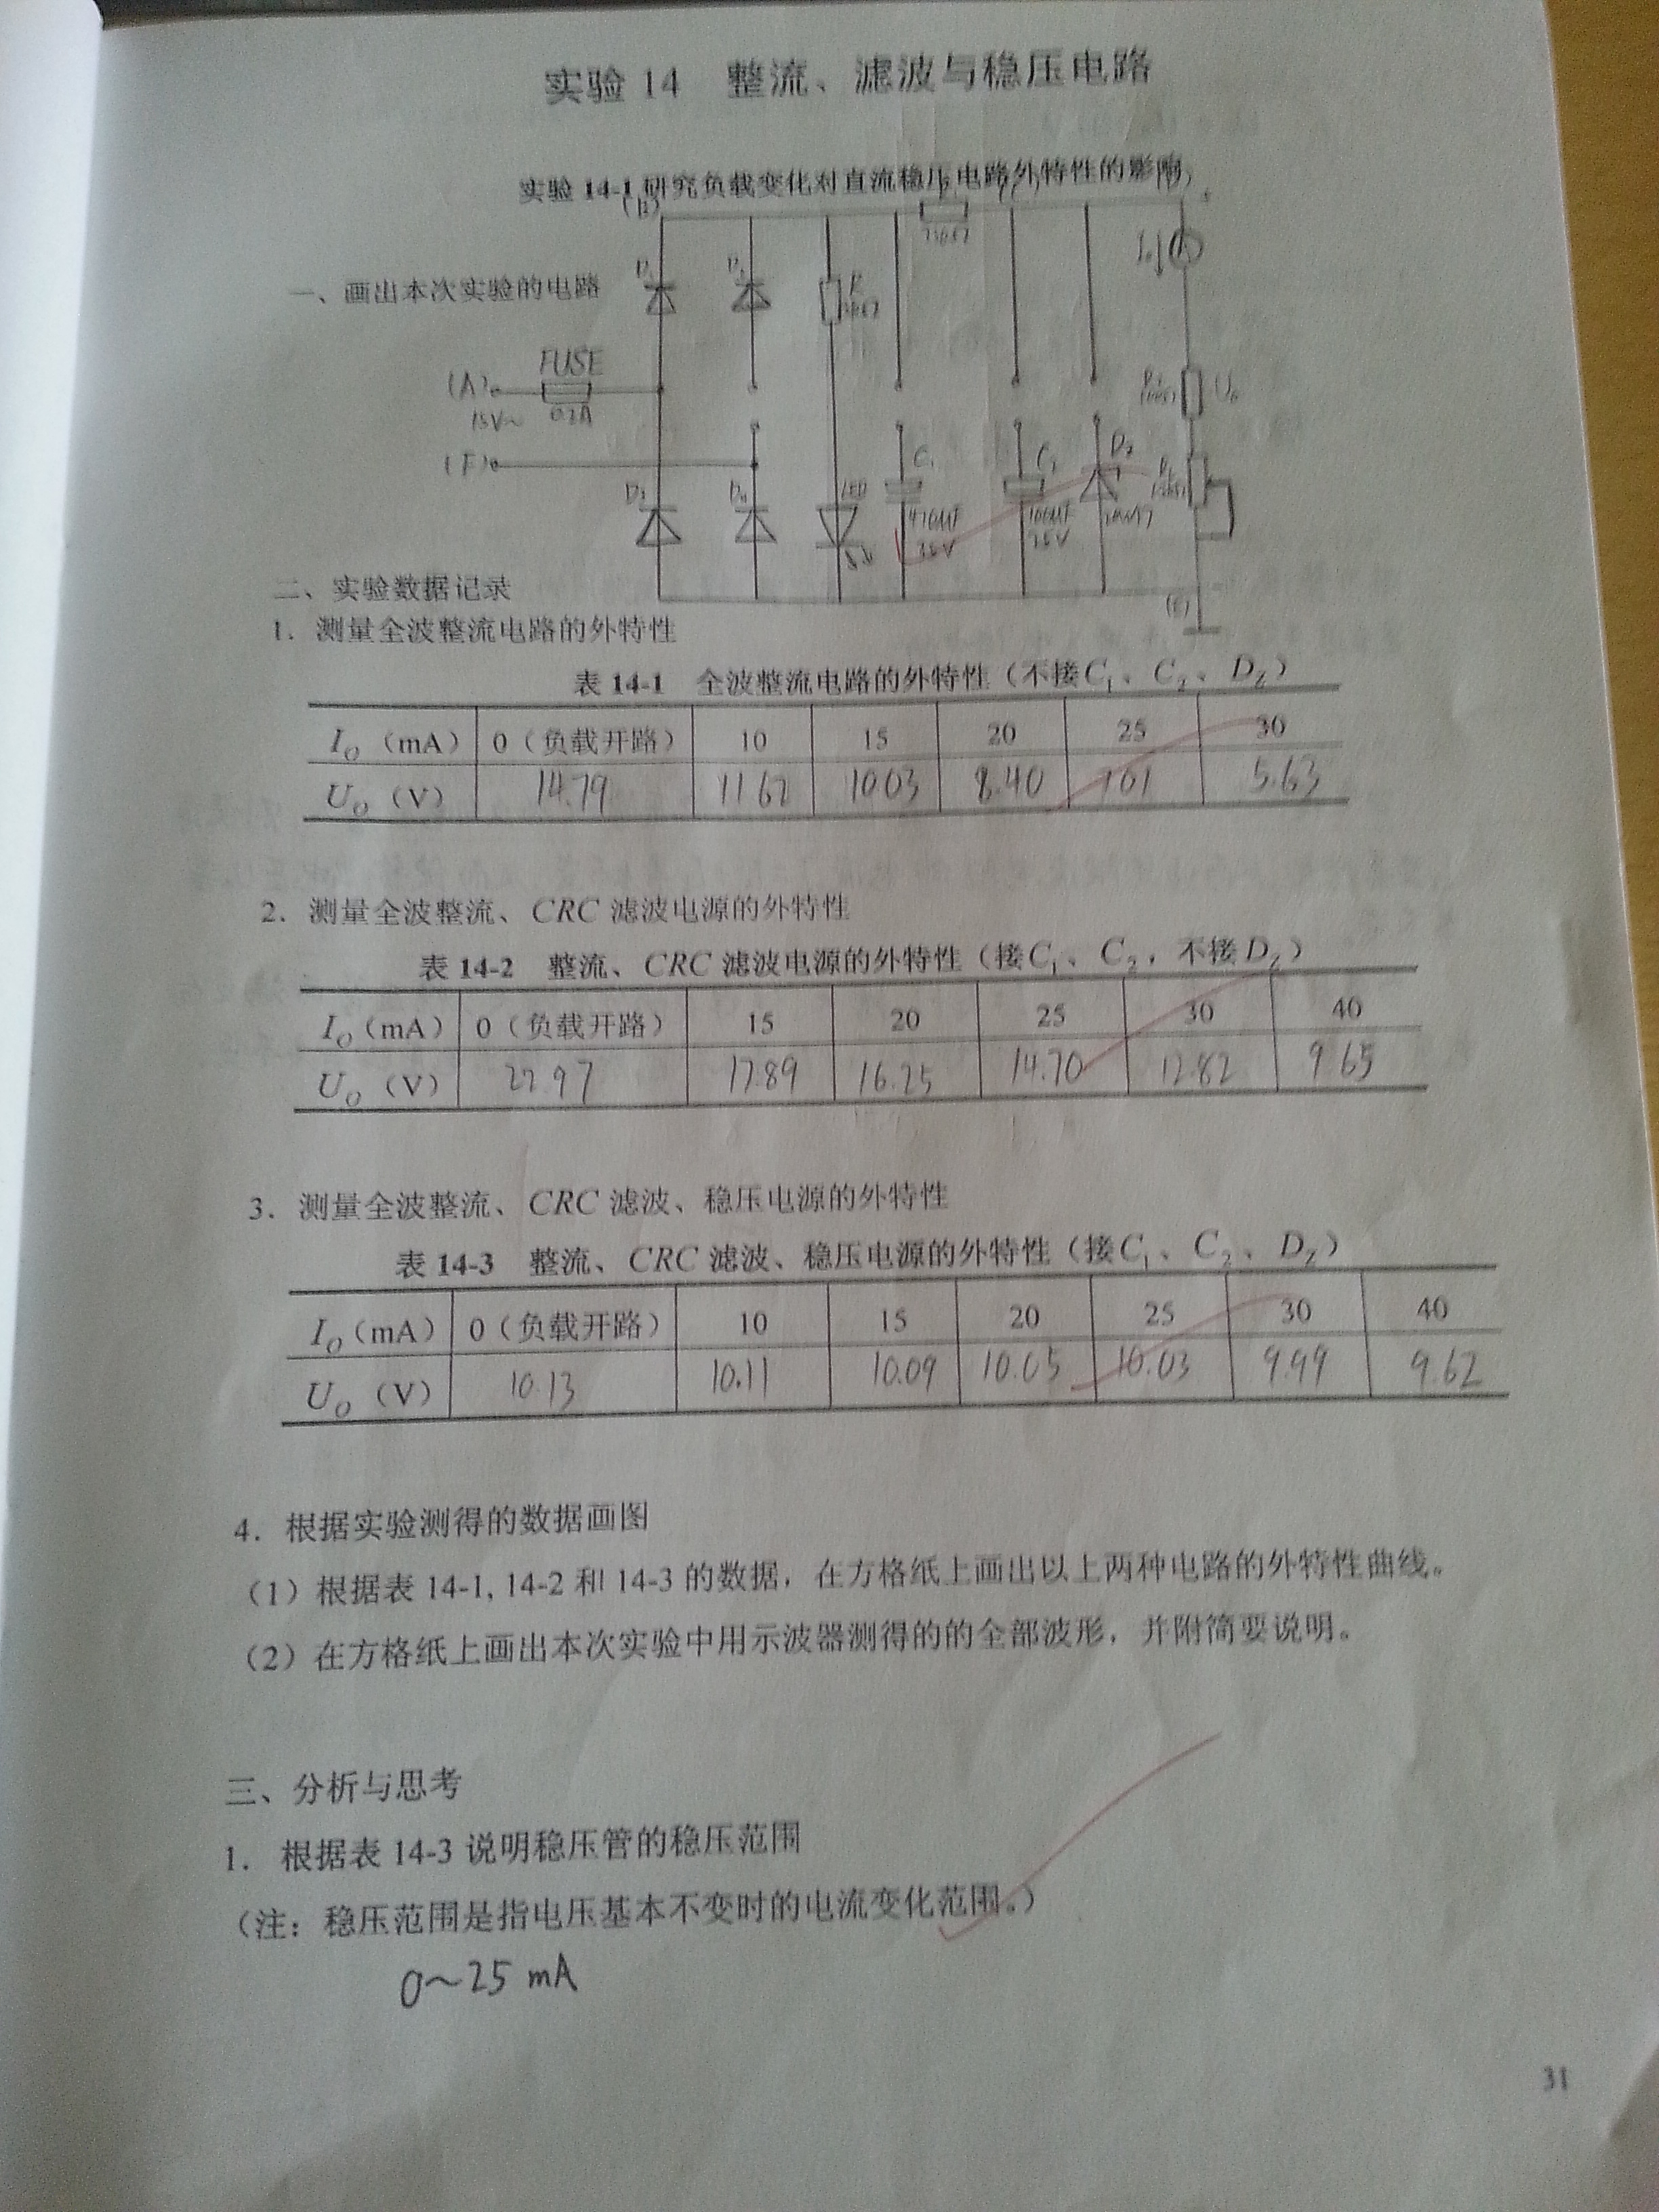 实验 14 整流、滤波与稳压电路
实验 14-1 研究负载变化对直流稳压电路外特性的影响
一、画出本次实验的电路
(A)
FUSE
15V~
0.2A
(F)
D3
D4
LED
C1
470μF
25V
100μF
25V
(E)
I0
U0
二、实验数据记录
1. 测量全波整流电路的外特性
表 14-1 全波整流电路的外特性（不接C1、C2、DZ）
IO（mA） 0（负载开路） 10 15 20 25 30
UO（V） 14.79 11.62 10.03 8.40 7.01 5.63
2. 测量全波整流、CRC 滤波电源的外特性
表 14-2 整流、CRC 滤波电源的外特性（接C1、C2，不接DZ）
IO（mA） 0（负载开路） 15 20 25 30 40
UO（V） 22.97 17.89 16.25 14.70 12.82 9.65
3. 测量全波整流、CRC 滤波、稳压电源的外特性
表 14-3 整流、CRC 滤波、稳压电源的外特性（接C1、C2、DZ）
IO（mA） 0（负载开路） 10 15 20 25 30 40
UO（V） 10.13 10.11 10.09 10.05 10.03 9.99 9.62
4. 根据实验测得的数据画图
（1）根据表 14-1, 14-2 和 14-3 的数据，在方格纸上画出以上两种电路的外特性曲线。
（2）在方格纸上画出本次实验中用示波器测得的的全部波形，并附简要说明。
三、分析与思考
1. 根据表 14-3 说明稳压管的稳压范围
（注：稳压范围是指电压基本不变时的电流变化范围。）
0~25 mA
31